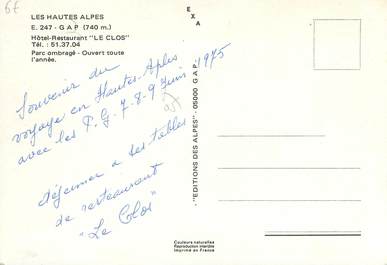 6E
LES HAUTES ALPES
E. 247 - GAP (740 m.)
Hôtel-Restaurant "LE CLOS"
Tél. : 51.37.04
Parc ombragé - Ouvert toute
l'année.
EXA
Souvenir du
voyage en Hautes-Aples
avec les P.G. 7-8-9 Juin 1975
déjeuner a ses tables
de restaurant
"Le Clos"
- "EDITIONS DES ALPES" - 05000 GAP -
Couleurs naturelles
Reproduction interdite
Imprimé en France